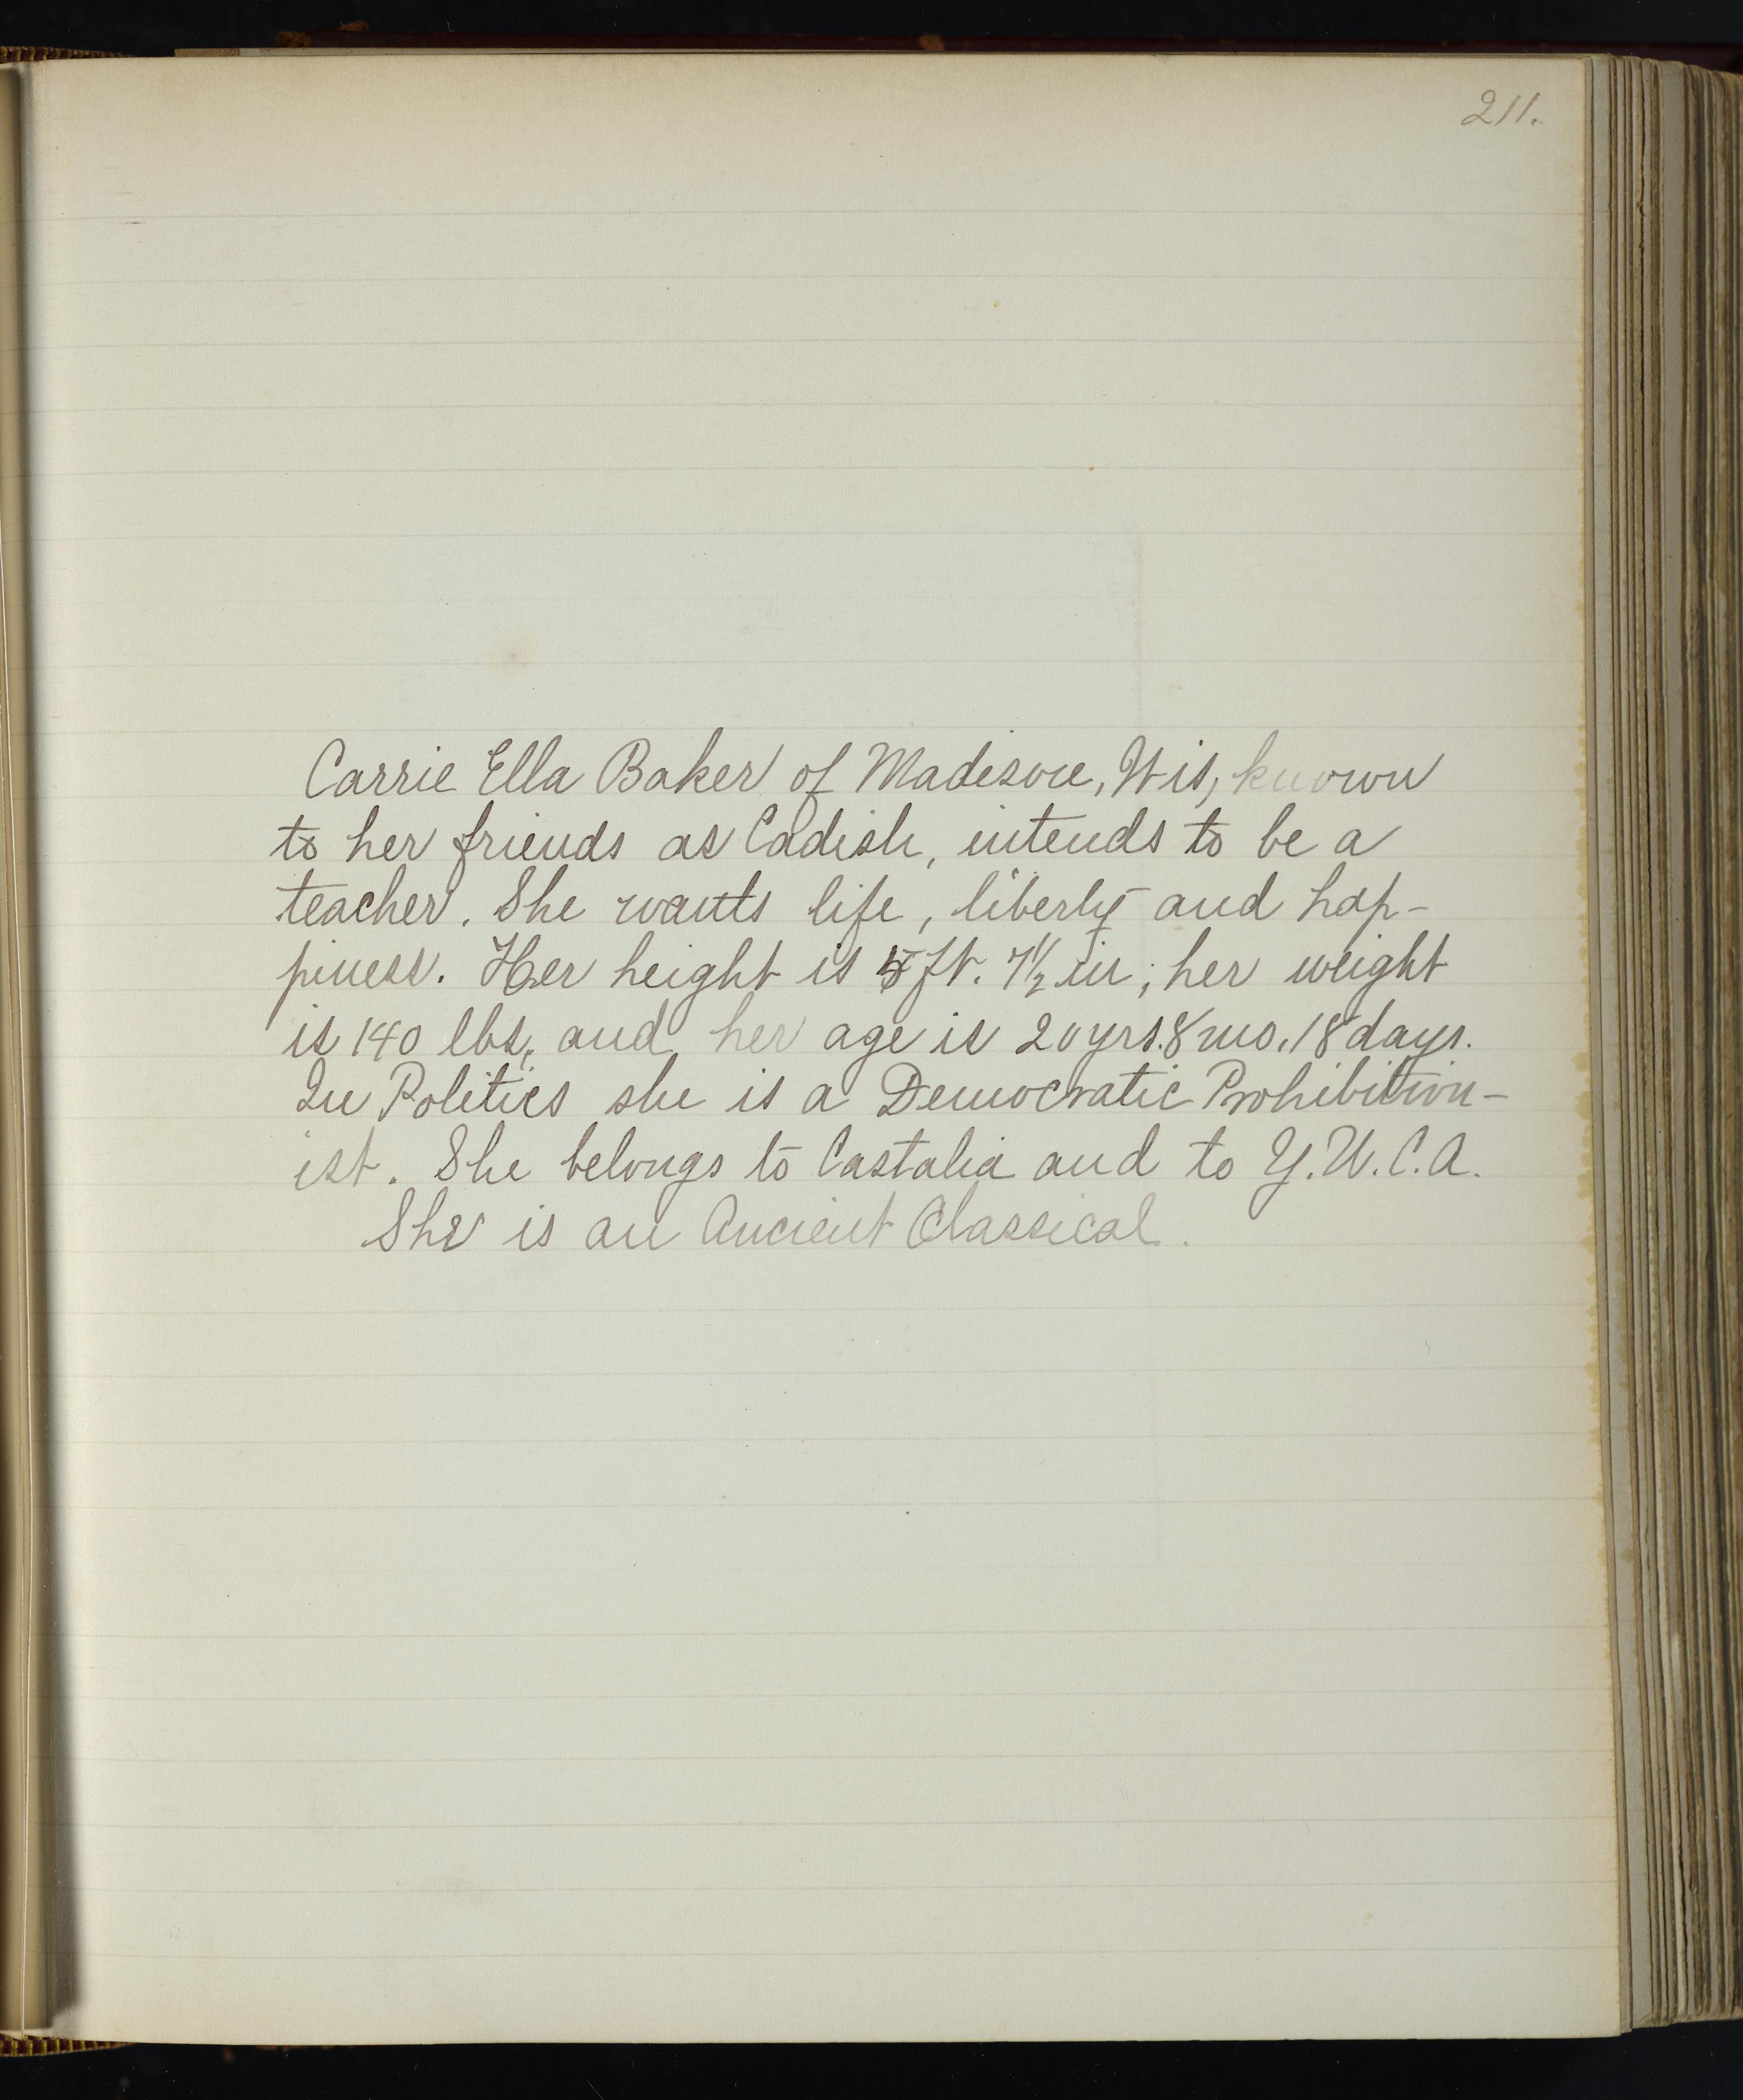 211.
Carrie Ella Baker of Madison, Wis, known
to her friends as Cadish, intends to be a
teacher. She wants life, liberty and hap-
piness. Her height is 5 ft. 7½ in; her weight
is 140 lbs, and her age is 20 yrs. 8 mo. 18 days.
In Politics she is a Democratic Prohibition-
ist. She belongs to Castalia and to Y.W.C.A.
She is an Ancient Classical.